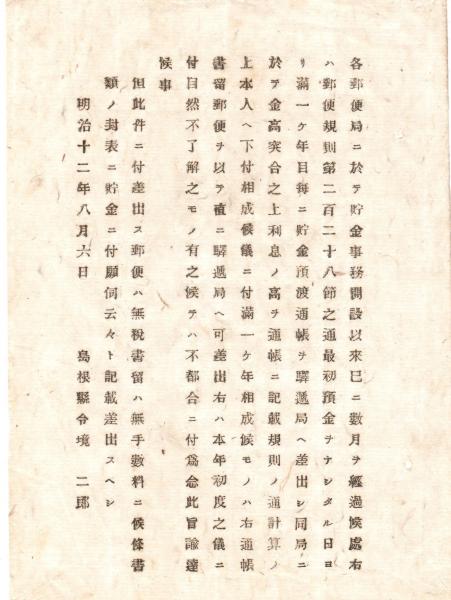 各郵便局ニ於テ貯金事務開設以來已ニ數月ヲ經過候處右
ハ郵便規則第二百二十八節之通最初預金ヲナシタル日ヨ
リ滿一ケ年目每ニ貯金預渡通帳ヲ驛遞局ヘ差出シ同局ニ
於テ金高突合之上利息ノ高ヲ通帳ニ記載規則ノ通計算ノ
上本人ヘ下付相成候儀ニ付滿一ケ年相成候モノハ右通帳
書留郵便ヲ以テ直ニ驛遞局ヘ可差出右ハ本年初度之儀ニ
付自然不了解之モノ有之候テハ不都合ニ付爲念此旨諭達
候事
但此件ニ付差出ス郵便ハ無稅書留ハ無手數料ニ候條書
類ノ封表ニ貯金ニ付願伺云々ト記載差出スヘシ
明治十二年八月六日
島根縣令境 二郎